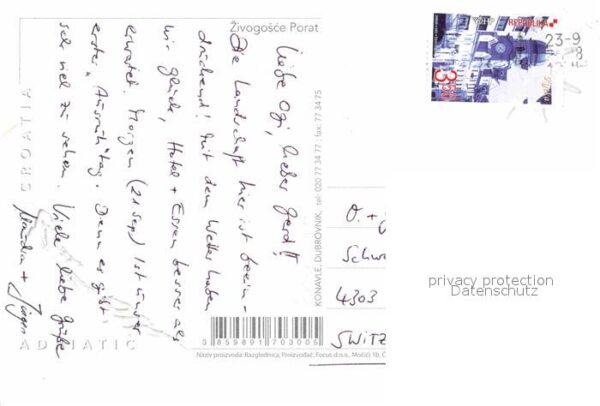 Živogošće Porat
Liebe Ogi, lieber Gerd!!
Die Landschaft hier ist beein-
druckend! Mit dem Wetter haben
wir Glück, Hotel + Essen besser als
erwartet. Morgen (21 Sep) ist unser
erster "Ausruh"tag. Denn es gibt
seh viel zu sehen. Viele liebe Grüße
+ Jürgen
CROATIA
ADRIATIC
KONAVLE, DUBROVNIK, tel: 020 77 34 77 · fax: 77 34 75
3 859891 703005
Naziv proizvoda: Razglednica; Proizvođač: Focus d.o.o., Močići
REPUBLIKA
3
23-9
8
O. +
Schw
4303
SWITZ
privacy protection
Datenschutz